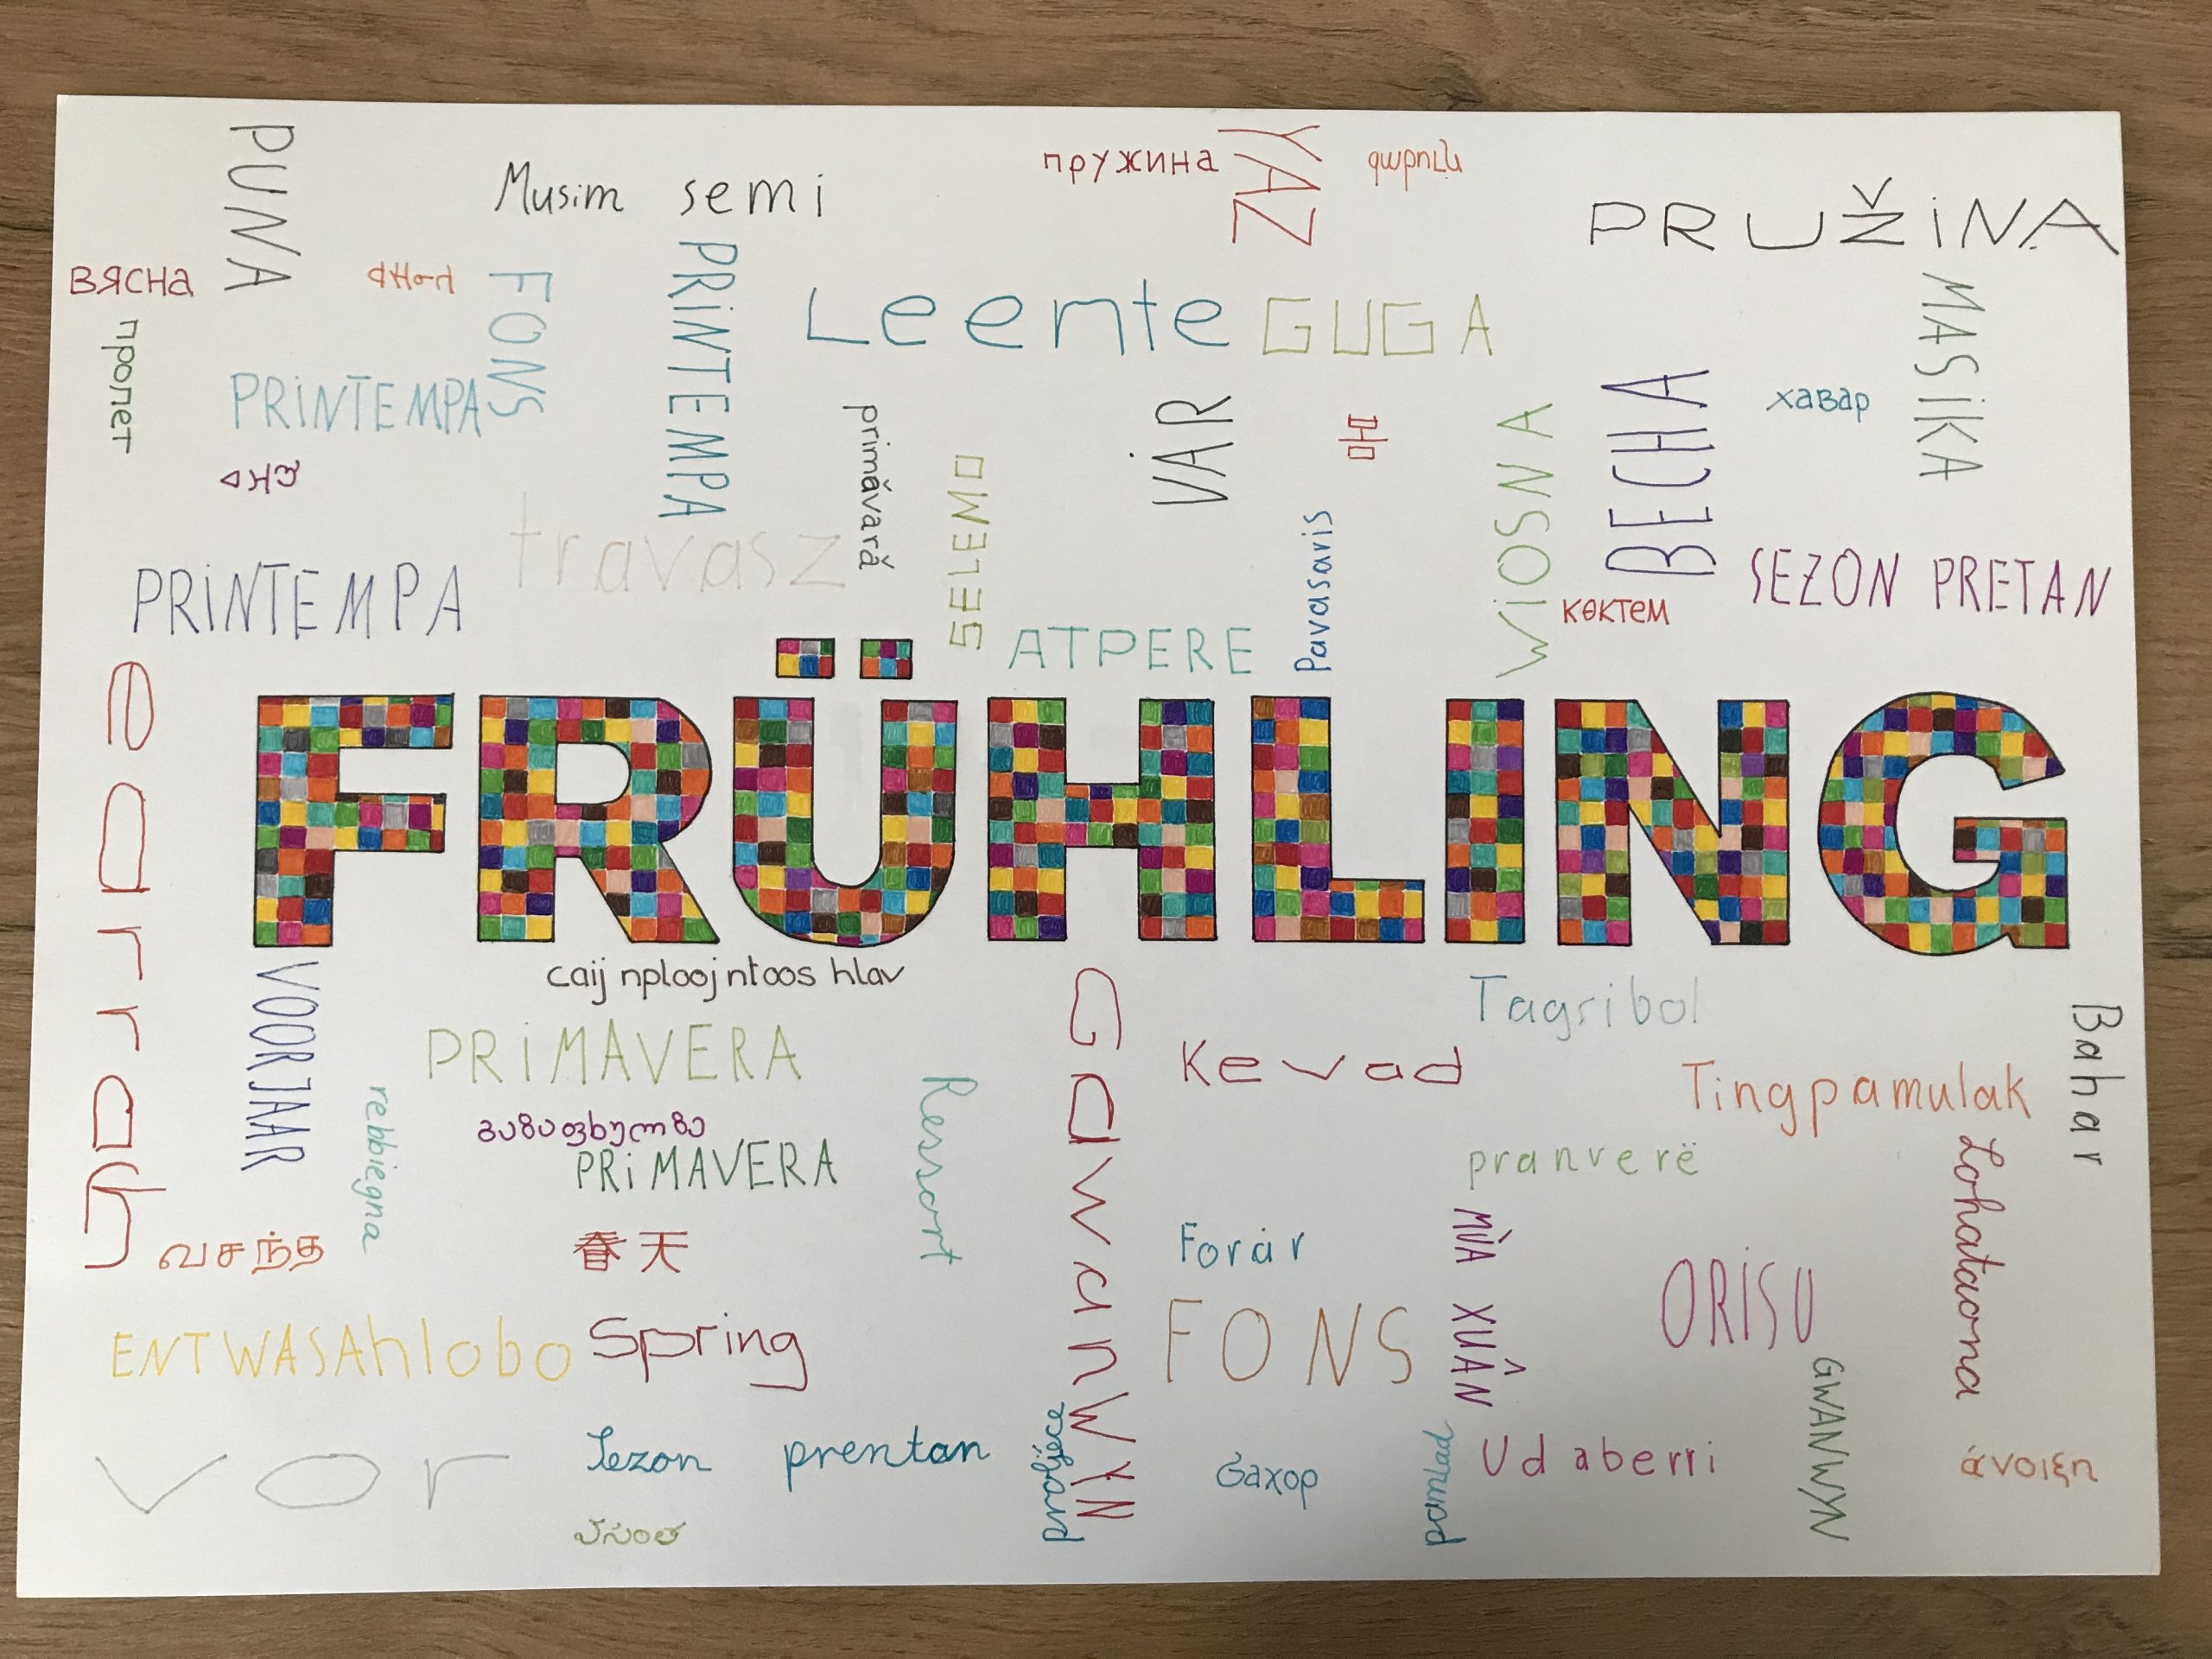 PUNA
Musim semi
пружина
YAZ
գարուն
PRUŽINA
вясна
FONS
PRINTEMPA
Leente
GUGA
MASIKA
пролет
PRINTEMPA
primăvară
VÁR
봄
WIOSNA
ВЕСНА
хавар
SELEMO
travasz
Pavasaris
PRINTEMPA
ATPERE
көктем
SEZON PRETAN
earrach
FRÜHLING
caij nplooj ntoos hlav
VOORJAAR
PRIMAVERA
rebbiegna
გაზაფხულზე
PRIMAVERA
Ressort
GawanWYN
Kevad
Tagsibol
Tingpamulak
Bahar
pranverë
வசந்த
春天
Forár
MÙA XUÂN
ORISU
Lohataona
ENTWASAhlobo
Spring
FONS
GWANWYN
vor
Sezon prentan
proljece
баxор
pomlad
Udaberri
άνοιξη